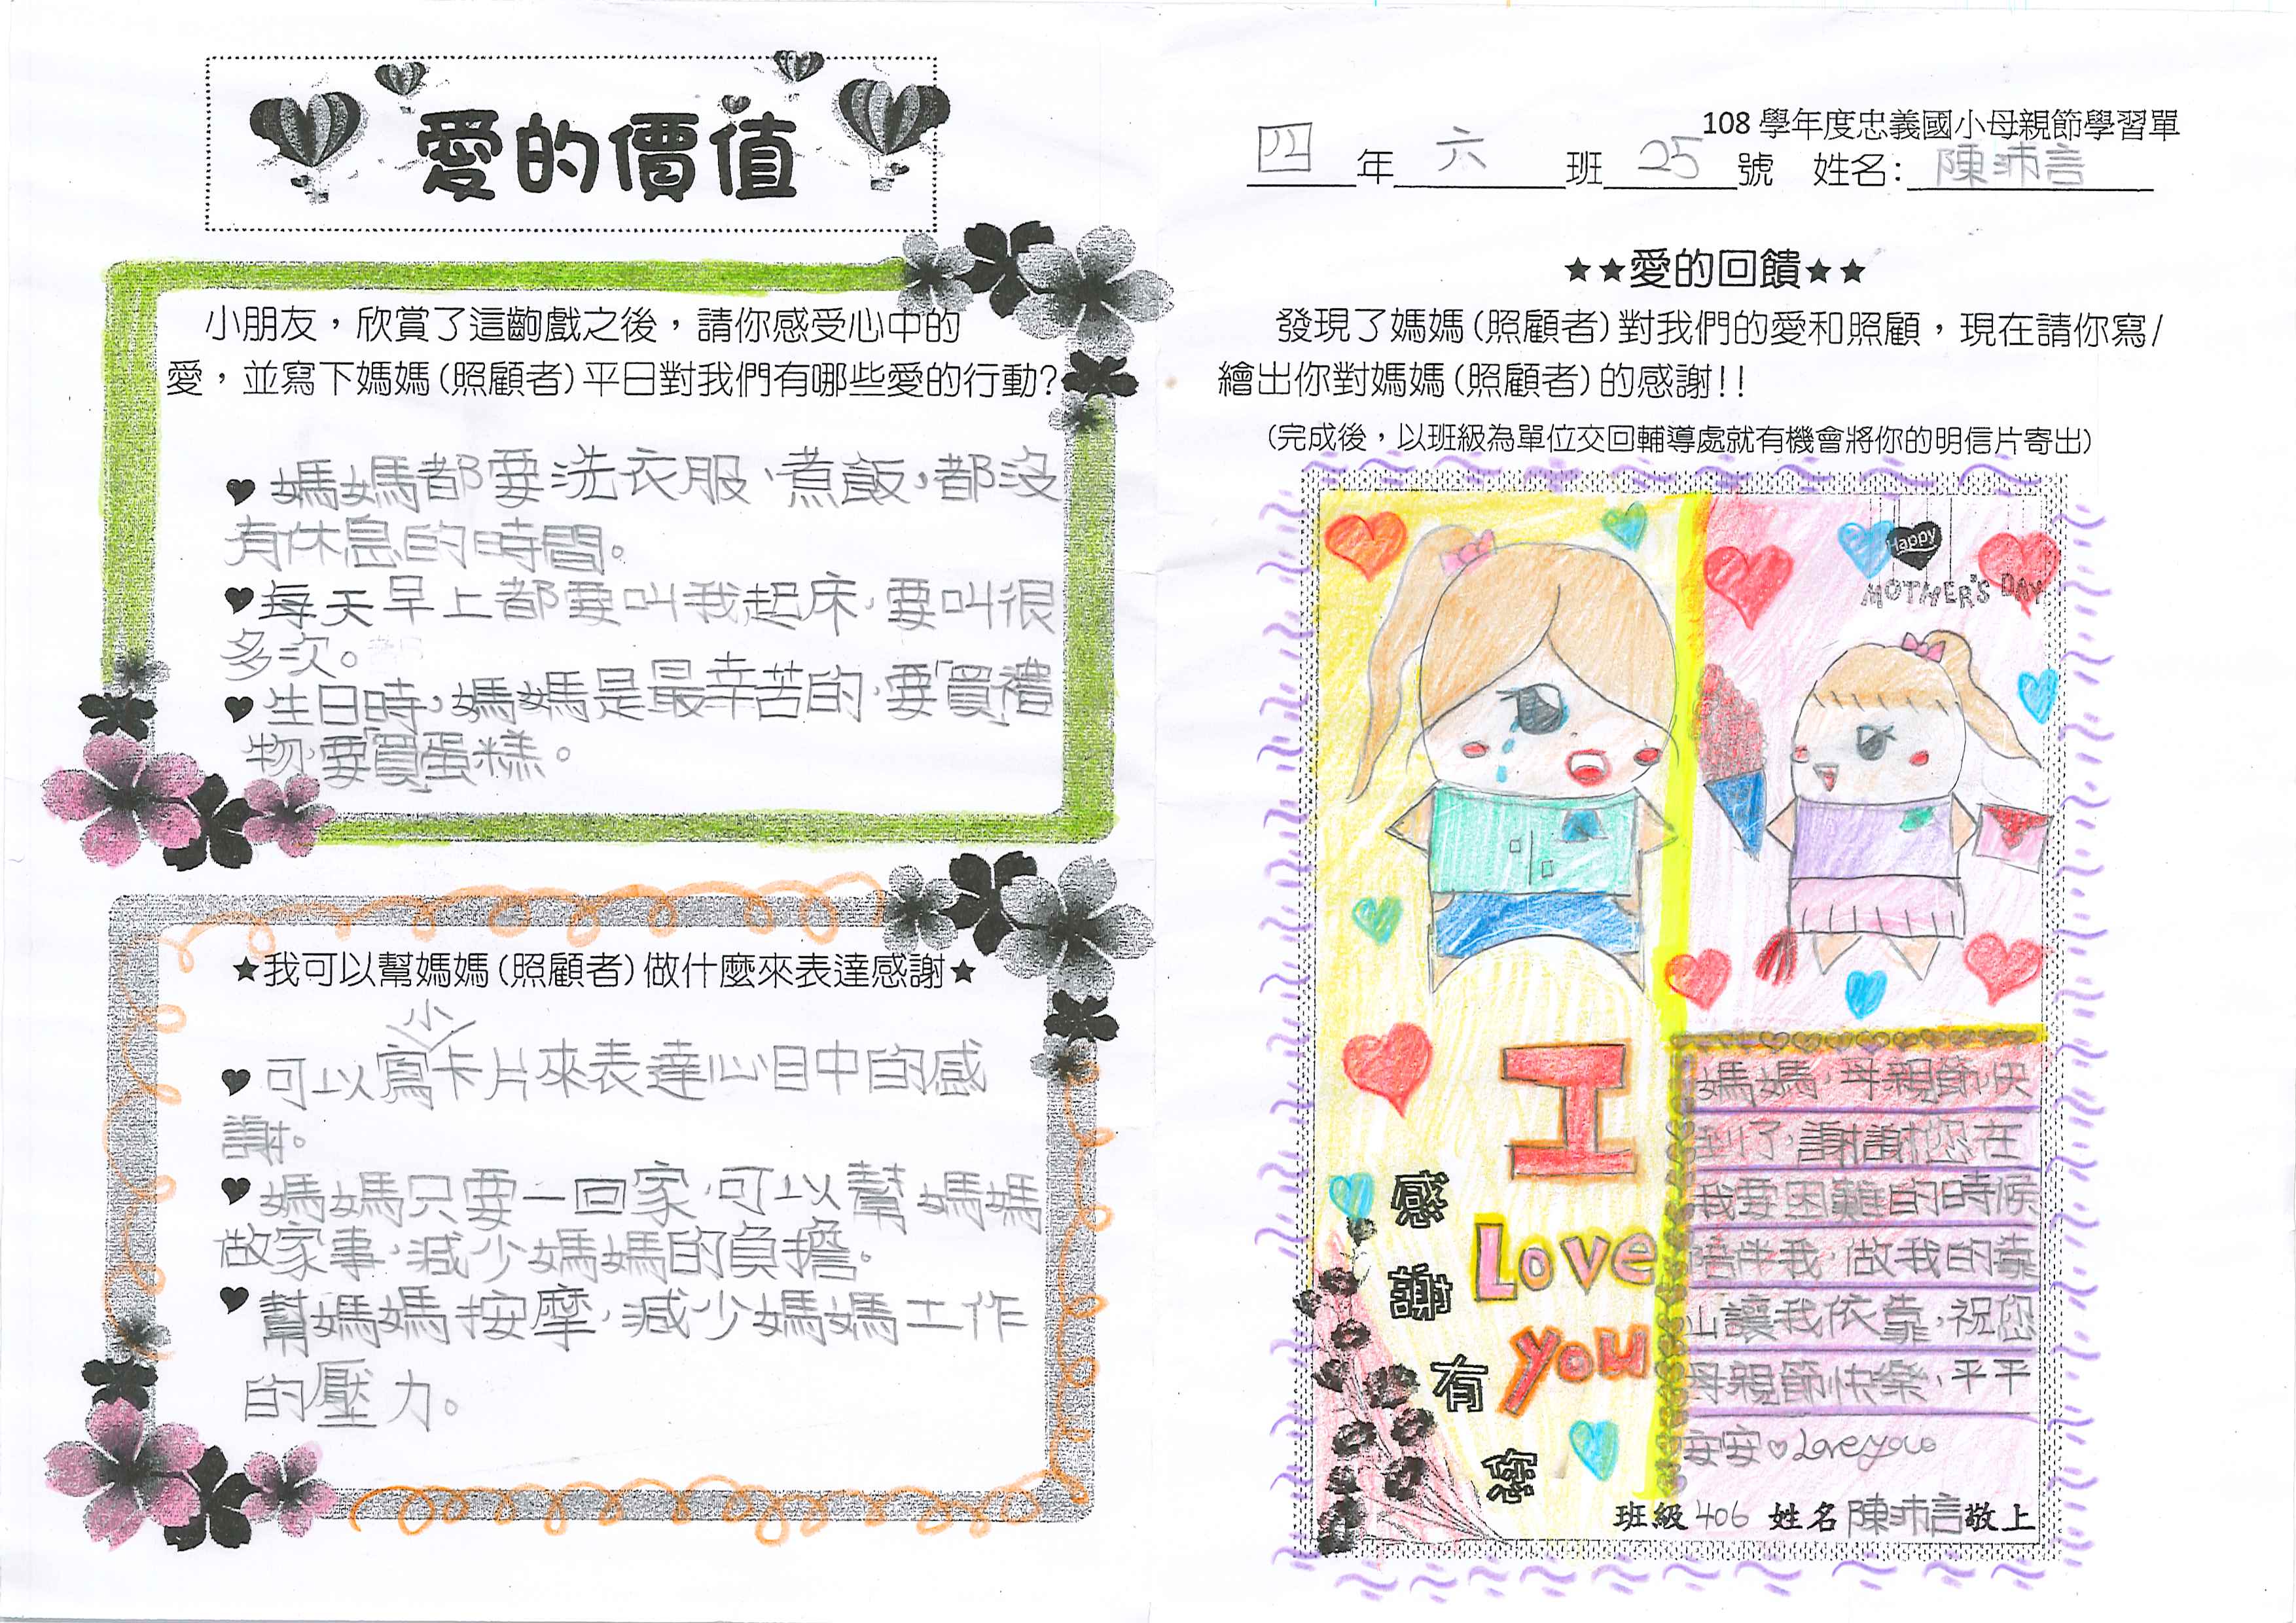 愛的價值
小朋友，欣賞了這齣戲之後，請你感受心中的
愛，並寫下媽媽(照顧者)平日對我們有哪些愛的行動?
♥媽媽都要洗衣服、煮飯，都沒
有休息的時間。
♥每天早上都要叫我起床，要叫很
多次。
♥生日時，媽媽是最辛苦的，要「買」禮
物，要「買」蛋糕。
★我可以幫媽媽(照顧者)做什麼來表達感謝★
小
♥可以寫卡片來表達心目中的感
謝。
♥媽媽只要一回家，可以幫媽媽
做家事，減少媽媽的負擔。
♥幫媽媽按摩，減少媽媽工作
的壓力。
108學年度忠義國小母親節學習單
四年六班25號 姓名:陳沛言
★★愛的回饋★★
發現了媽媽(照顧者)對我們的愛和照顧，現在請你寫/
繪出你對媽媽(照顧者)的感謝!!
(完成後，以班級為單位交回輔導處就有機會將你的明信片寄出)
Happy
MOTHER'S DAY
I
Love
you
感謝有您
媽媽，母親節快
到了，謝謝您在
我要困難的時候
陪伴我，做我的靠
山讓我依靠，祝您
母親節快樂，平平
安安♡Love you
班級406 姓名陳沛言敬上